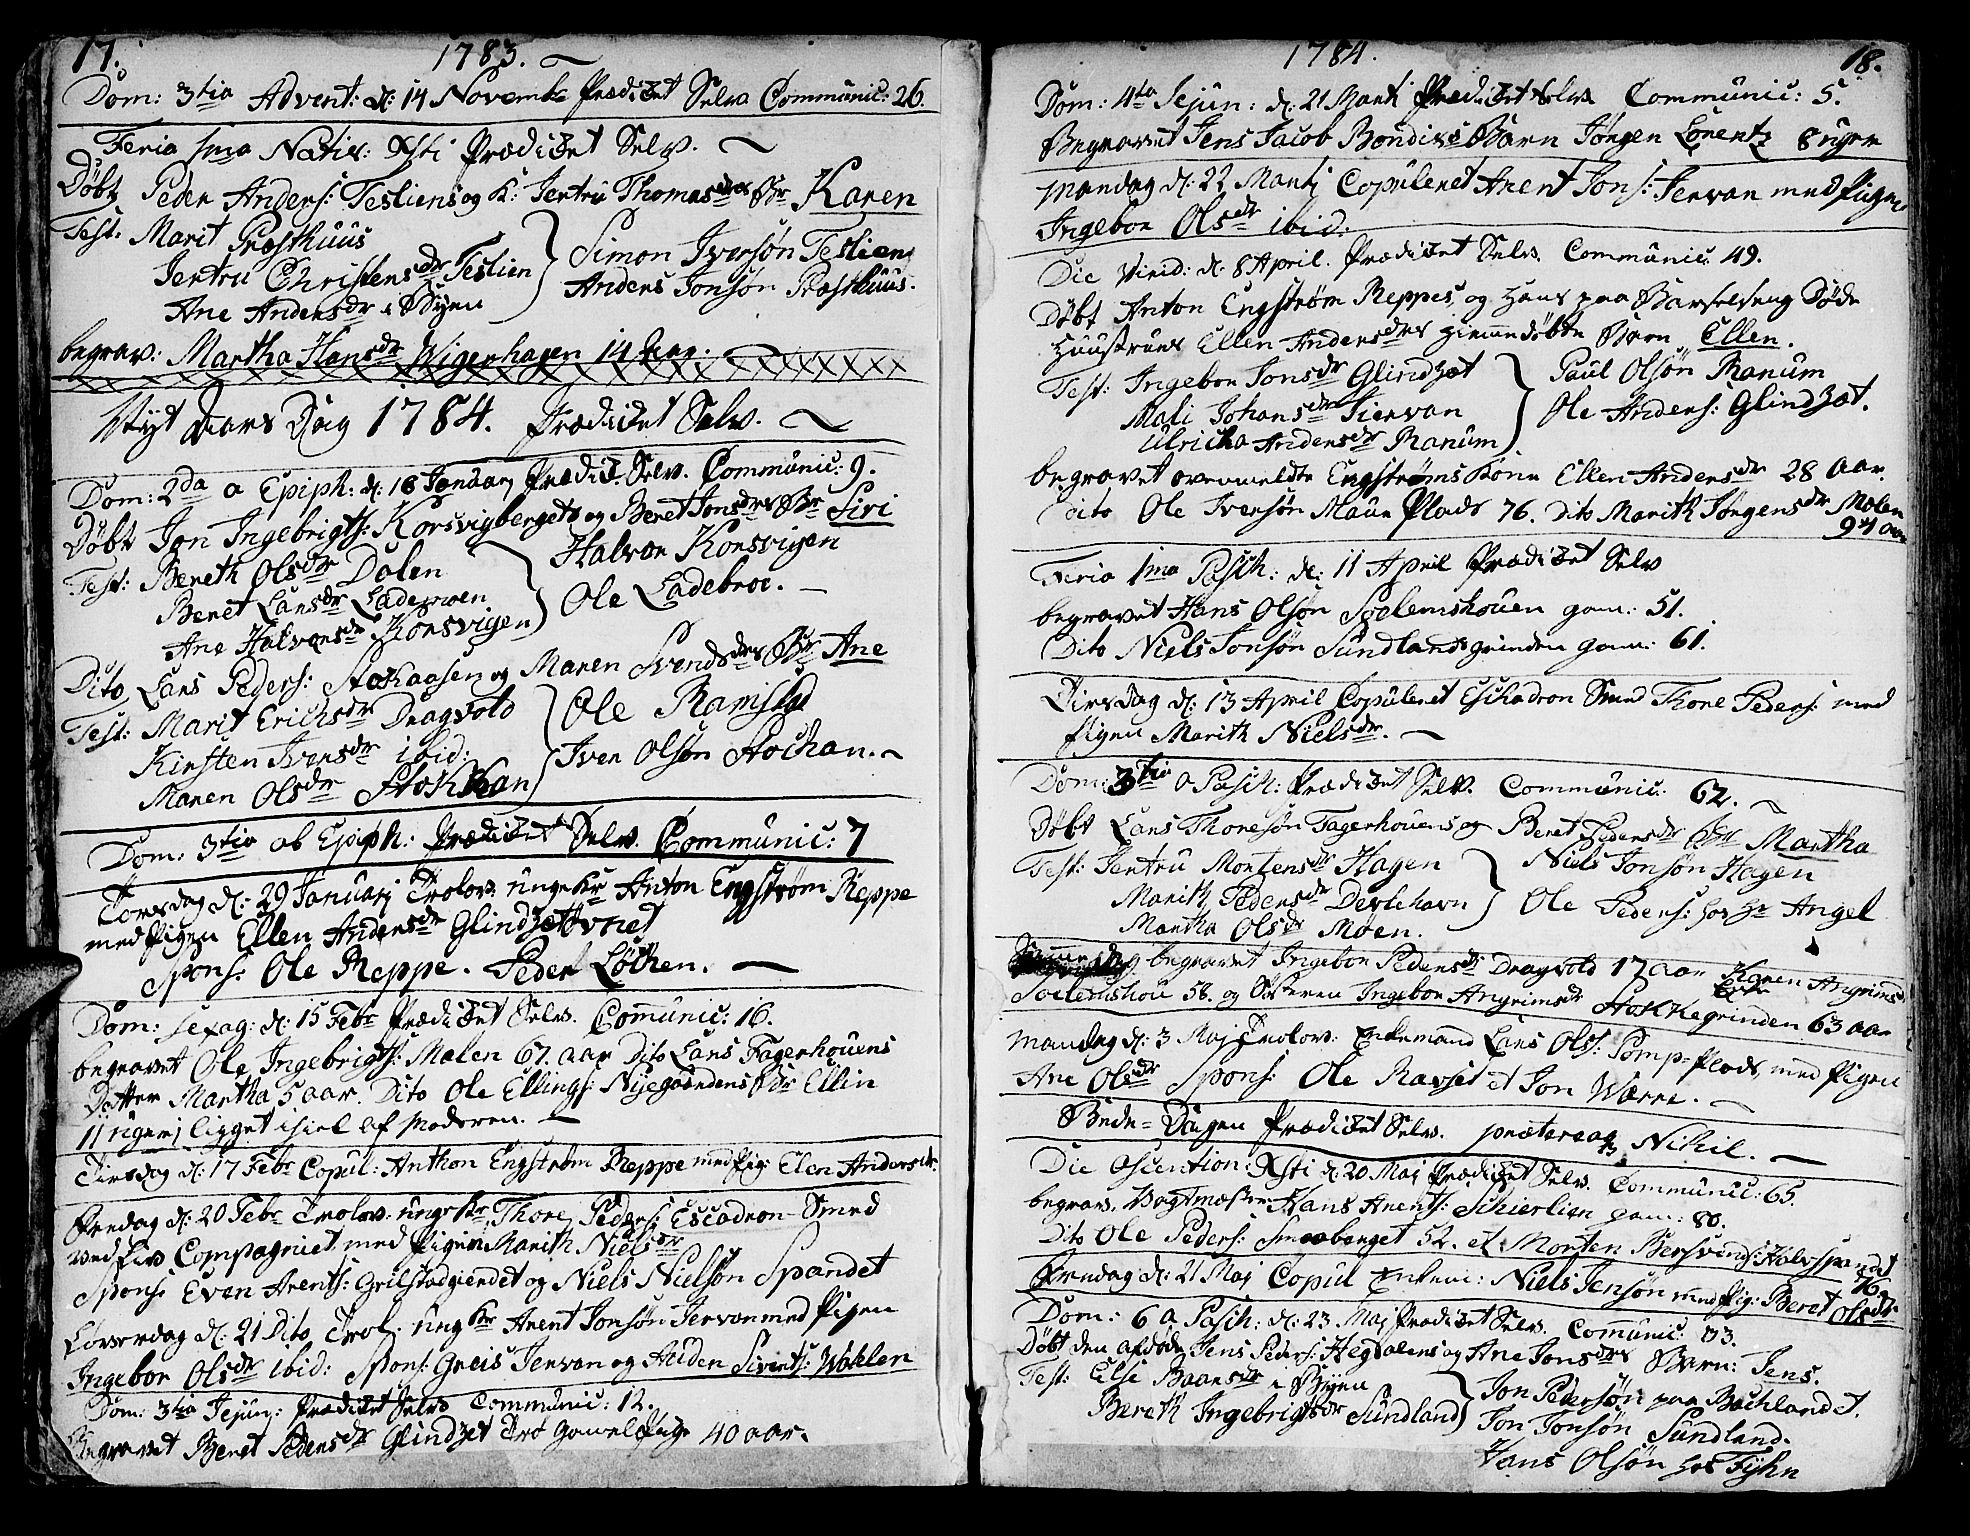 17.
1783.
Dom: 3tia Advent: d: 14 Novembr Prædiket Selv. Communic: 26.
Feria 1ma Nativ: Xsti Prædiket Selv.
Døbt Peder Anders: Tesliens og K: Jertru Thomasdrs Br Karen
Test: Marit Præsthuus
Jertru Christensdr Teslien
Ane Andersdr i Byen
Simon Iversøn Teslien
Anders Jonsøn Præsthuus.
begrav: Martha Hansdr Wigenhagen 14 Aar.
Nyt Aars Dag 1784. Prædiket Selv.
Dom: 2da a Epiph: d: 18 Januarj Prædik: Selv. Communic: 9.
Døbt Jon Ingebrigts: Korsvigbergets og Beret Jonsdrs Br Siri
Test: Bereth Olsdr Dalen
Beret Larsdr Ladejoen
Ane Halvorsdr Korsvigen
Halvor Korsvigen
Ole Ladebroe.
Dito Lars Peders: Stokaasen og Maren Svendsdrs Br Ane
Test: Marit Erichsdr Dragvold
Kirsten Iversdr ibid:
Maren Olsdr Stokkan
Ole Ramstad
Iver Olsøn Stochan.
Dom: 3tia ab Epiph: Prædiket Selv. Communic: 7
Torsdag d: 29 Januarj Trolov: unge Kr Anton Engstrøm Reppe
med Pigen Ellen Andersdr Glindzetvnet
Spons: Ole Reppe. Peder Løchen.
Dom: Sexag: d: 15 Febr Prædiket Selv. Comunic: 16.
begravet Ole Ingebrigts: Malen 67. aar Dito Lars Fagerhouens
Datter Martha 5 aar. Dito Ole Ellings: Nijegaardens Br Ellin
11 uger, ligget ihiel af Moderen.
Tirsdag d: 17 Febr Copul: Anthon Engstrøm Reppe med Pig: Elen Andersdr.
Fredag d: 20 Febr Trolov. unge Kr Thore Peders: Escadron Smed
ved Compagniet med Pigen Marith Nielsdr
Spons: Even Arents: Grilstadgiendet og Niels Nielsøn Spandet
Løverdag d: 21 Dito Trol: ung Kr Arent Jonsøn Jervan med Pigen
Ingebor Olsdr ibid: Spons: Greis Jervan og Auden Siverts: Wahlen
Dom: 3tia Jejun: Prædiket Selv Communic: 12.
Begravet Beret Pedersdr Glindzet Trø gamel Pige 40 aar.
1784.
18.
Dom: 4ta Jejun: d: 21 Martj Prædiket Selv. Communic: 5.
Begravet Jens Jacob Bondixs Barn Jørgen Lorentz 8 uger
Mandag d: 22 Martj Copuleret Arent Jons: Jervan med Pigen
Ingebor Olsdr ibid:
Die Virid: d: 8 April. Prædiket Selv. Communic: 49.
Døbt Anton Engstrøm Reppes, og Hans paa Barselseng Døde
Huustrues Ellen Andersdrs hiemmedøbte Barn Ellen.
Test: Ingebor Jonsdr Glindzæt
Mali Johansdr Jervan
Ulricha Andersdr Ranum
Paul Olsøn Ranum
Ole Anders: Glindzæt.
begravet ovenmeldte Engstrøms Kone Ellen Andersdr 28 aar.
Dito Ole Iversøn Maur Plads 76. Dito Marith Jørgensdr Malen
94 aar
Feria 1ma Pasch: d: 11 April Prædiket Selv
begravet Hans Olsøn Soelemshouen gam: 51.
Dito Niels Jonsøn Sundlandsgrinden gam: 61.
Tirsdag d: 13 April Copuleret Eschadron Smed Thore Peders: med
Pigen Marith Nielsdr.
Dom: 3tia a Pasch: Prædiket Selv. Communic: 62.
Døbt Lars Thoresøn Fagerhouens og Beret Pedersdr Br Martha
Test: Jertru Mortensdr Hagen
Marith Pedersdr Devlehavn
Martha Olsdr Moen.
Niels Jonsøn Hagen
Ole Peders: hos Hr Angel
begravet Ingebor Pedersdr Dragvold 17 aar Karen Angrimsdr
Soelemshou 58. og Søsteren Ingebor Angrimsdr Stokkegrinden 63 aar
Mandag d: 3 Maj Trolov: Enkemand Lars Ols: Pomp-Plads, med Pigen
Ane Olsdr Spons: Ole Ravset et Jon Wærre.
Bede-Dagen Prædiket Selv. prætereaq Nihil.
Die Ascention: Xsti d: 20 Maj Prædiket Selv. Communic: 65.
begrav. Vagtmæster Hans Arents: Schierlien gam: 80.
Dito Ole Peders: Smeeberget 52. et Morten Bersvends: Halvsspandet
76.
Fredag d: 21 Maj Copul Enkem: Niels Jensøn med Pig: Beret Olsdr
Dom: 6 a Pasch: d: 23 Maj Prædiket Selv. Comunic: 33.
Døbt den afdøde Jens Peders: Hegdalens og Ane Jonsdrs Barn: Jens.
Test: Else Baarsdr i Byen
Bereth Ingebrigtsdr Sundland
Jon Pedersøn paa Bachlandet.
Jon Jonsøn Sundland.
Hans Olsøn hos Fyhn